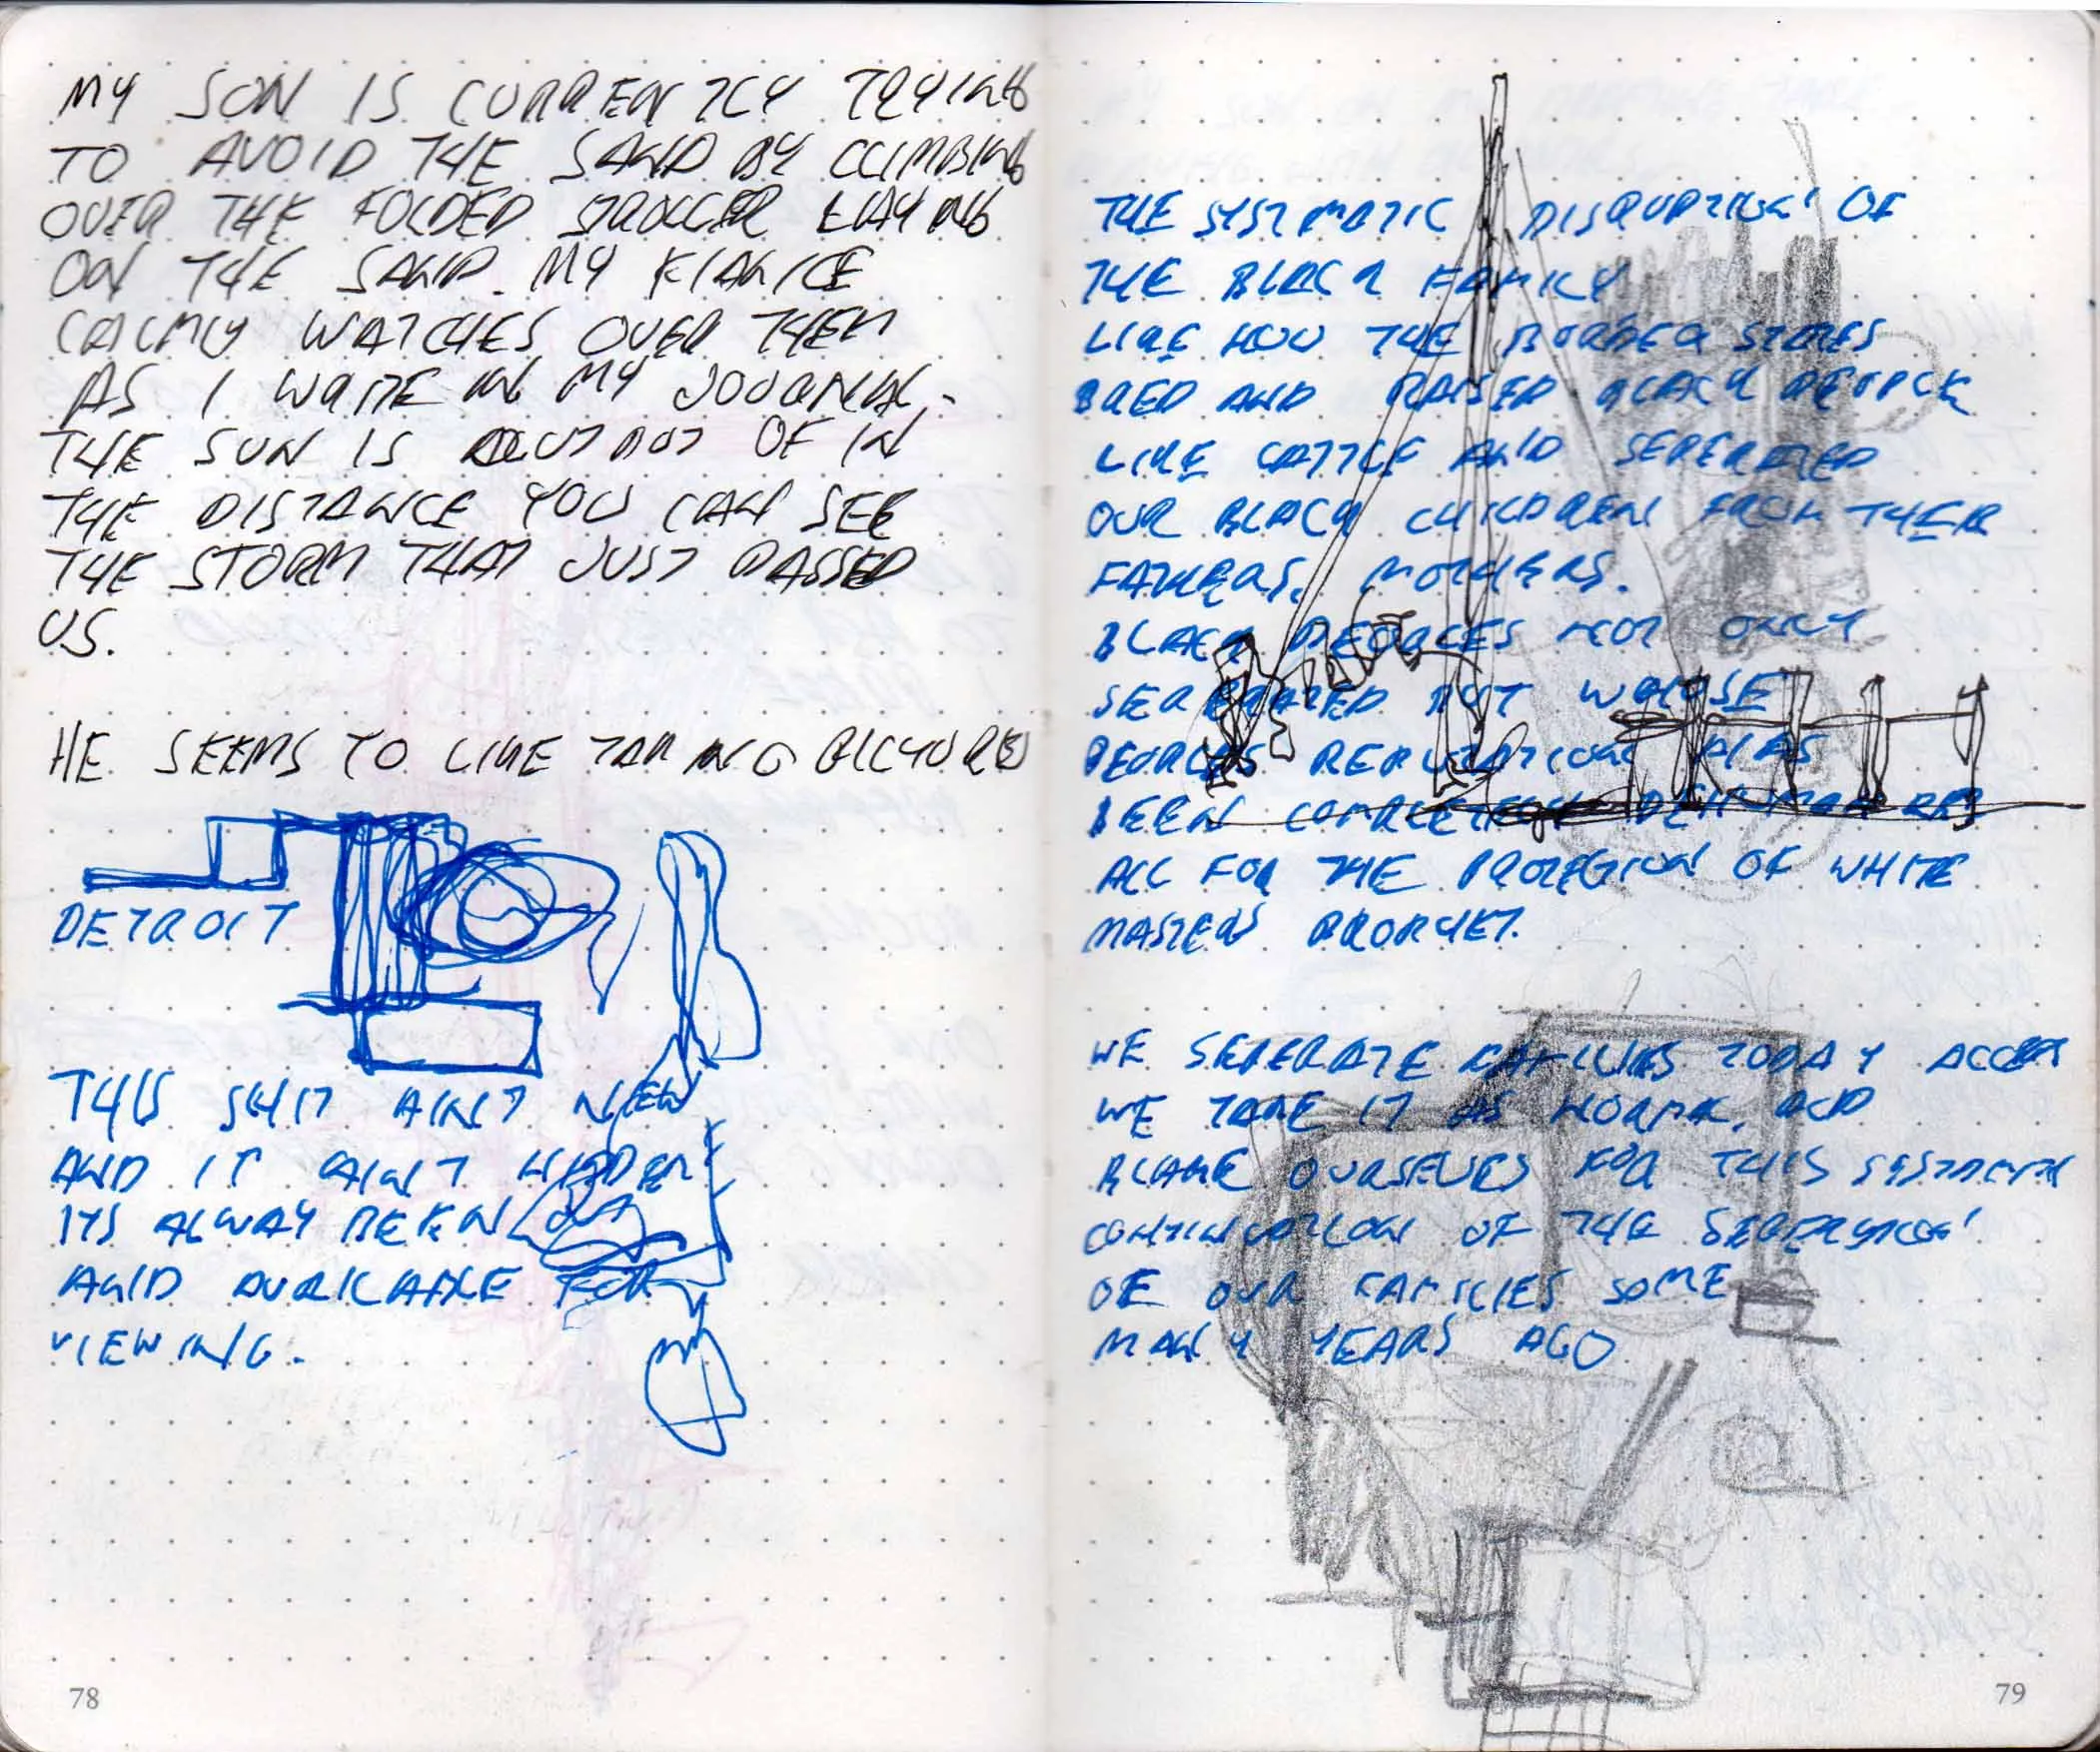 MY SON IS CURRENTLY TRYING
TO AVOID THE SAND BY CLIMBING
OVER THE FOLDED STROLLER LAYING
ON THE SAND. MY FIANCE
CALMLY WATCHES OVER THEM
AS I WRITE IN MY JOURNAL.
THE SUN IS OUT OF IN
THE DISTANCE YOU CAN SEE
THE STORM THAT JUST PASSED
US.
HE SEEMS TO LIKE TAKING PICTURES
DETROIT
THIS SHIT AIN'T NEW
AND IT AIN'T HIDDEN
ITS ALWAY BEEN OUT
AND AVAILABLE FOR
VIEWING.
78
THE SYSTMATIC DISRUPTION OF
THE BLACK FAMILY
LIKE HOW THE BORDER STATES
BRED AND RAISED BLACK PEOPLE
LIKE CATTLE AND SEPERATED
OUR BLACK CHILDREN FROM THEIR
FATHERS, MOTHERS.
BLACK PEOPLES NOT ONLY
SEPERATED BUT WHOSE
PEOPLES REPUTATION HAS
BEEN COMPLETELY
ALL FOR THE PROTECTION OF WHITE
MASTERS PROPHET.
WE SEPERATE FAMILIES TODAY
WE TAKE IT AS NORMAL, AND
BLAME OURSELVES FOR THIS
CONTINUATION OF THE SEPERATION
OF OUR FAMILIES SOME
MANY YEARS AGO
79